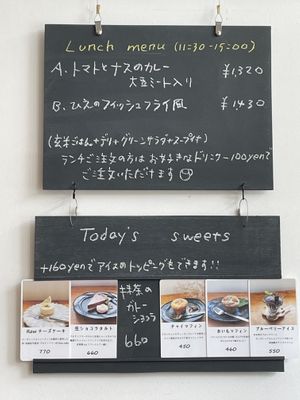 Lunch menu (11:30-15:00)
A. トマトとナスのカレー ¥1,320
大豆ミート入り
B. ひえのフィッシュフライ風 ¥1,430
(玄米ごはん+デリ+グリーンサラダ+スープ付)
ランチご注文の方はお好きなドリンク-100yenで
ご注文いただけます
Today's sweets
+160yenでアイスのトッピングもできます!!
Rawチーズケーキ
770
生ショコラタルト
660
抹茶の
ガトー
ショコラ
660
チャイマフィン
450
おいもマフィン
460
ブルーベリーアイス
550